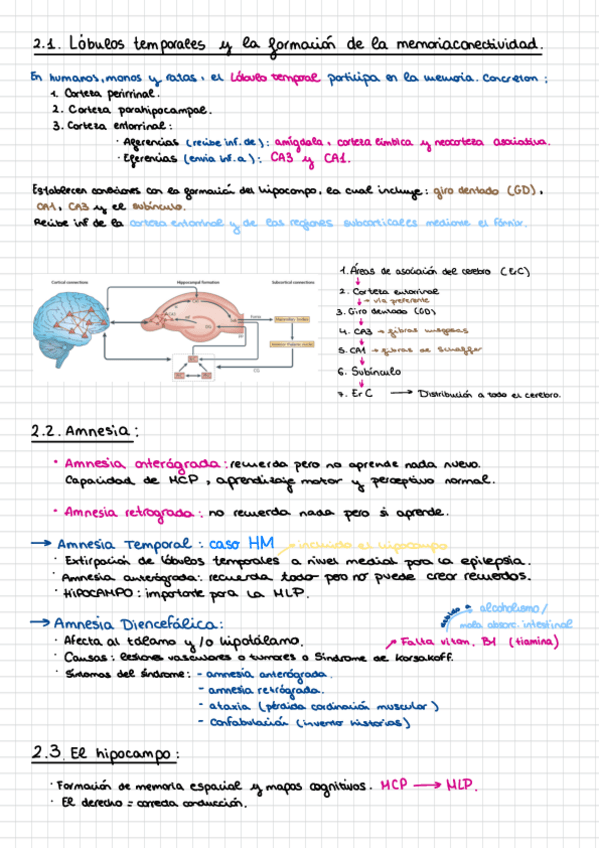 2.1. Lóbulos temporales y la formación de la memoriaconectividad.
En humanos, monos y ratas, el lóbulo temporal participa en la memoria. Concreton:
1. Corteza perirrinal.
2. Corteza parahipocampal.
3. Corteza entorrinal:
· Aferencias (recibe inf. de): amígdala, corteza límbica y neocorteza asociativa.
· Eferencias (envía inf. a): CA3 y CA1.
Establecen conexiones con la formación del hipocampo, la cual incluye: giro dentado (GD),
CA1, CA3 y el subínculo.
Recibe inf de la corteza entorrinal y de las regiones subcorticales mediante el fórnix.
Cortical connections
Hippocampal formation
Subcortical connections
Fornix
1. Áreas de asociación del cerebro (ErC)
2. Corteza entorrinal
→ vía perforante
3. Giro dentado (GD)
4. CA3 → fibras musgosas
5. CA1 → fibras de Schaffer
6. Subínculo
7. ErC → Distribución a todo el cerebro.
2.2. Amnesia:
· Amnesia anterógrada: recuerda pero no aprende nada nuevo.
Capacidad de MCP, aprendizaje motor y perceptivo normal.
· Amnesia retrógrada: no recuerda nada pero si aprende.
→ Amnesia Temporal: caso HM → incluido el hipocampo
· Extirpación de lóbulos temporales a nivel medial para la epilepsia.
· Amnesia anterógrada: recuerda todo pero no puede crear recuerdos.
· HIPOCAMPO: importante para la MLP.
→ Amnesia Diencefálica:
debido a alcoholismo/
mala absorc. intestinal
· Afecta al tálamo y/o hipotálamo.
→ Falta vitam. B1 (tiamina)
· Causas: lesiones vasculares o tumores o Síndrome de Korsakoff.
· Síntomas del síndrome: - amnesia anterógrada.
- amnesia retrógrada.
- ataxia (pérdida cordinación muscular)
- confabulación (invento historias)
2.3. El hipocampo:
· Formación de memoria espacial y mapas cognitivos. MCP → MLP.
· El derecho = correcta conducción.